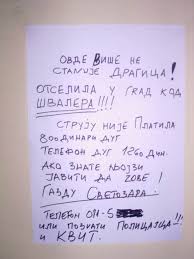 ОВДЕ ВИШЕ НЕ
СТАНУЈЕ ДРАГИЦА!
ОТСЕЛИЛА У ГРАД КОД
ШВАЛЕРА!!!!
СТРУЈУ НИЈЕ ПЛАТИЛА
800 ДИНАРИ ДУГ
ТЕЛЕФОН ДУГ 1260 ДИН.
АКО ЗНАТЕ ЊОЈЗИ
ЈАВИТИ ДА ЗОВЕ!
ГАЗДУ СВЕТОЗАРА:
ТЕЛЕФОН 011-5
ИЛИ ПОЗВАТИ ПОЛИЦАЈЦА!!!
И КВИТ.